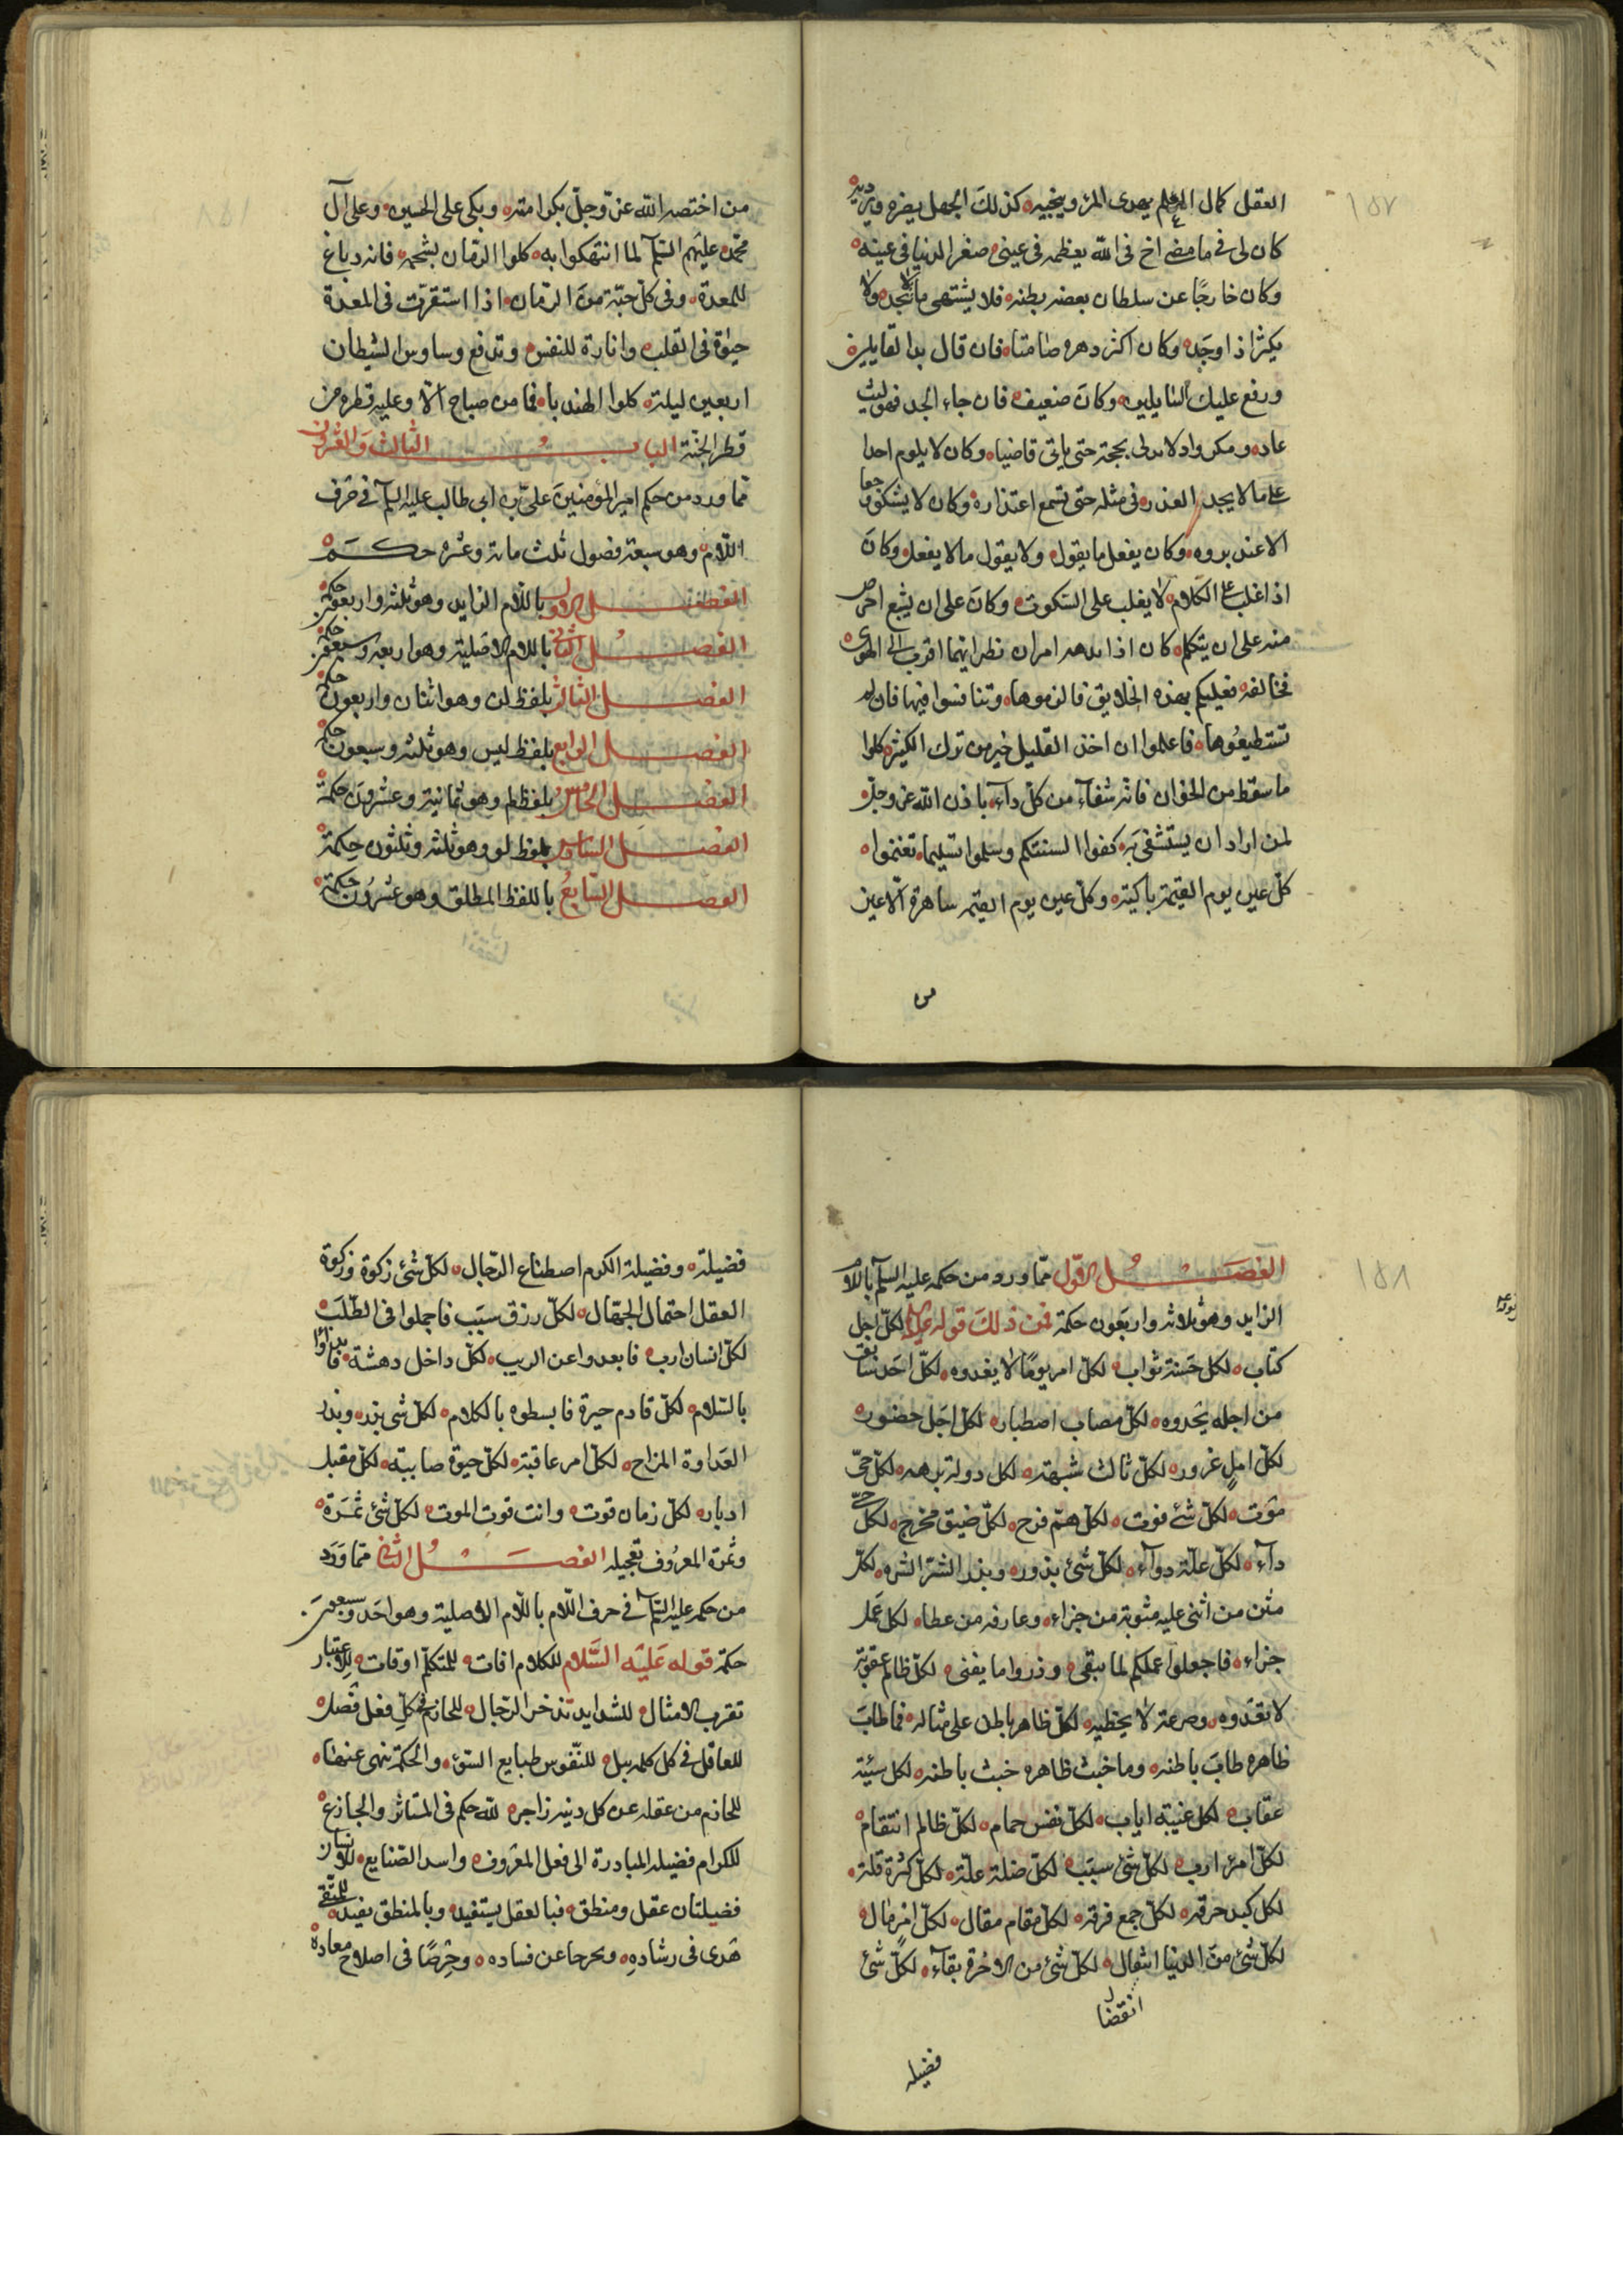 ١٥٧
العقل كمال العلم يهدى المرء وينجيه كذلك الجهل يضره ويرديه
كان لى فى ما مضى اخ فى الله يعظمه فى عينى صغر الدنيا فى عينه
وكان خارجًا عن سلطان بطنه فلا يشتهى ما لا يجد ولا
يكثر اذا وجده وكان اكثر دهره صامتا فان قال بدا القايلين
وكان ضعيفه فان جاء الجد فهو ليث
عاد لا يدلى بحجة حتى ياتى قاضيا وكان لا يلوم احدا
على ما لا يجد العذر فى مثله حتى تسمع اعتذاره وكان لا يشكو وجعا
الا عند بروه وكان يفعل ما يقول ولا يقول ما لا يفعل وكان
اذا غلب على الكلام لا يغلب على السكوت وكان على ان يسمع احرص
منه على ان يتكلم كان اذا بدهه امران نظر ايهما اقرب الى الهوى
فخالفه فعليكم بهذه الخلايق فالزموها وتنافسوا فيها فان لم
تستطيعوها فاعلموا ان اخذ القليل خير من ترك الكثير كلوا
ما سقط من الخوان فانه شفآء من كل دآء باذن الله عز وجل
لمن اراد ان يستشفى به كفوا السنتكم وسلموا تسليما تغنموا
كل عين يوم القيمة باكية وكل عين يوم القيمة ساهرة الا عين
من
من اختصه الله عز وجل بكرامته وبكى على الحسين وعلى آل
محمد عليهم السلم لما انتهكوا به كلوا الرمان بشحمه فانه دباغ
للمعدة وفى كل حبة من الرمان اذا استقرت فى المعدة
حيوة فى القلب وانارة للنفس وتدفع وساوس الشيطان
اربعين ليلة كلوا الهندبا فما من صباح الا وعليه قطرة من
قطر الجنة الباب الثالث والعشرون
مما ورد من حكم امير المؤمنين على بن ابى طالب عليه السلم فى حرف
اللام وهو سبعة فصول ثلث مائة وعشره حكم
الفصل الاول باللام الزايد وهو ثلثه واربعون حكمة
الفصل الثانى باللام الاصلية وهو اربعة وسبعون حكمة
الفصل الثالث بلفظ لن وهو اثنان واربعون حكمة
الفصل الرابع بلفظ ليس وهو ثلثه وسبعون حكمة
الفصل الخامس بلفظ لم وهو ثمانية وعشرون حكمة
الفصل السادس بلفظ لو وهو ثلثه وثلثون حكمة
الفصل السابع باللفظ المطلق وهو عشرون حكمة
١٥٨
الفصل الاول مما ورد من حكمه عليه السلم باللام
الزايد وهو ثلاثه واربعون حكمة فمن ذلك قوله لكل اجل
كتاب لكل حسنة ثواب لكل امر يومًا لا يغدوه لكل احد سائق
من اجله يحدوه لكل مصاب اصطبار لكل اجل حضور
لكل امل غرور لكل ثالث شبهة لكل دولة برهه لكل حى
موت لكل شئ فوت لكل هم فرح لكل ضيق مخرج لكل حى
دآء لكل علة دوآء لكل شئ بذور وبذر الشر الشره لكل
مثن من اثنى عليه مثوبة من جزاء وعارفه من عطا لكل عمل
جزاء فاجعلوا عملكم لما يبقى وذروا ما يفنى لكل ظالم عقوبة
لا يعدوه وصرعة لا يخطيه لكل ظاهر باطن على مثاله فما طاب
ظاهره طاب باطنه وما خبث ظاهره خبث باطنه لكل سيئة
عقاب لكل غيبة اياب لكل نفس حمام لكل ظالم انتقام
لكل امرء ارب لكل شئ سبب لكل ضلة علة لكل كثرة قلة
لكل كبد حرقه لكل جمع فرقه لكل مقام مقال لكل امر مال
لكل شئ من الدنيا انتقال لكل شئ من الاخرة بقآء لكل شئ
انقضا
فضيله
فضيلة وفضيلة الكرم اصطناع الرجال لكل شئ زكوة وزكوة
العقل احتمال الجهال لكل رزق سبب فاجملوا فى الطلب
لكل انسان ارب فابعدوا عن الريب لكل داخل دهشة فابداوا
بالسلام لكل قادم حيرة فابسطوه بالكلام لكل شى بذر وبذر
العداوة المزاح لكل امر عاقبة لكل حيوة لكل مقبل
ادبار لكل زمان قوت وانت قوت الموت لكل شئ ثمرة
وثمرة المعروف تعجيله الفصل الثانى مما ورد
من حكمه عليه السلم فى حرف اللام باللام الاصلية وهو احد وسبعون
حكمة قوله عليه السلام للكلام افات للمتكلم اوقات للاعتبار
تضرب الامثال للشدايد تذخر الرجال للحازم فى كل فعل فضل
للعاقل فى كل كلمه نبل للنفوس طبايع السوء والحكمة تنهى عنها
للحازم من عقله عن كل دنيه زاجر لله حكم فى المستاثر والجازع
للكرام فضيله المبادرة الى فعل المعروف واسد الصنايع للانسان
فضيلتان عقل ومنطق فبالعقل يستفيد وبالمنطق يفيد للمتقى
هدى فى رشاده وتحرجا عن فساده وحرصًا فى اصلاح معاده